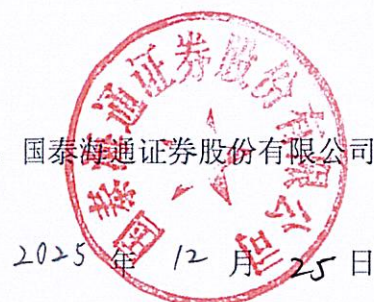 国泰海通证券股份有限公司
国泰海通证券股份有限公司
2025 年 12 月 25 日